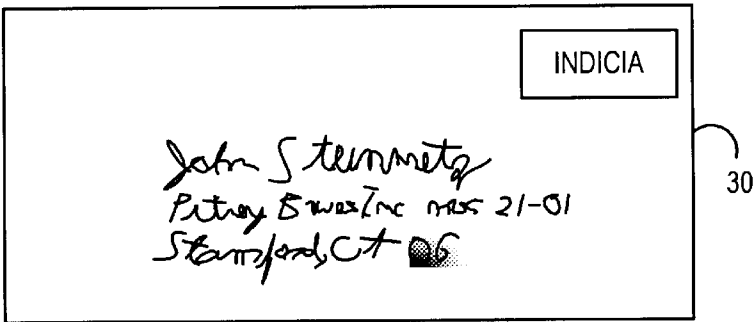 INDICIA
John Steinmetz
Pitney Bowes Inc MSC 21-01
Stamford, CT 06
30